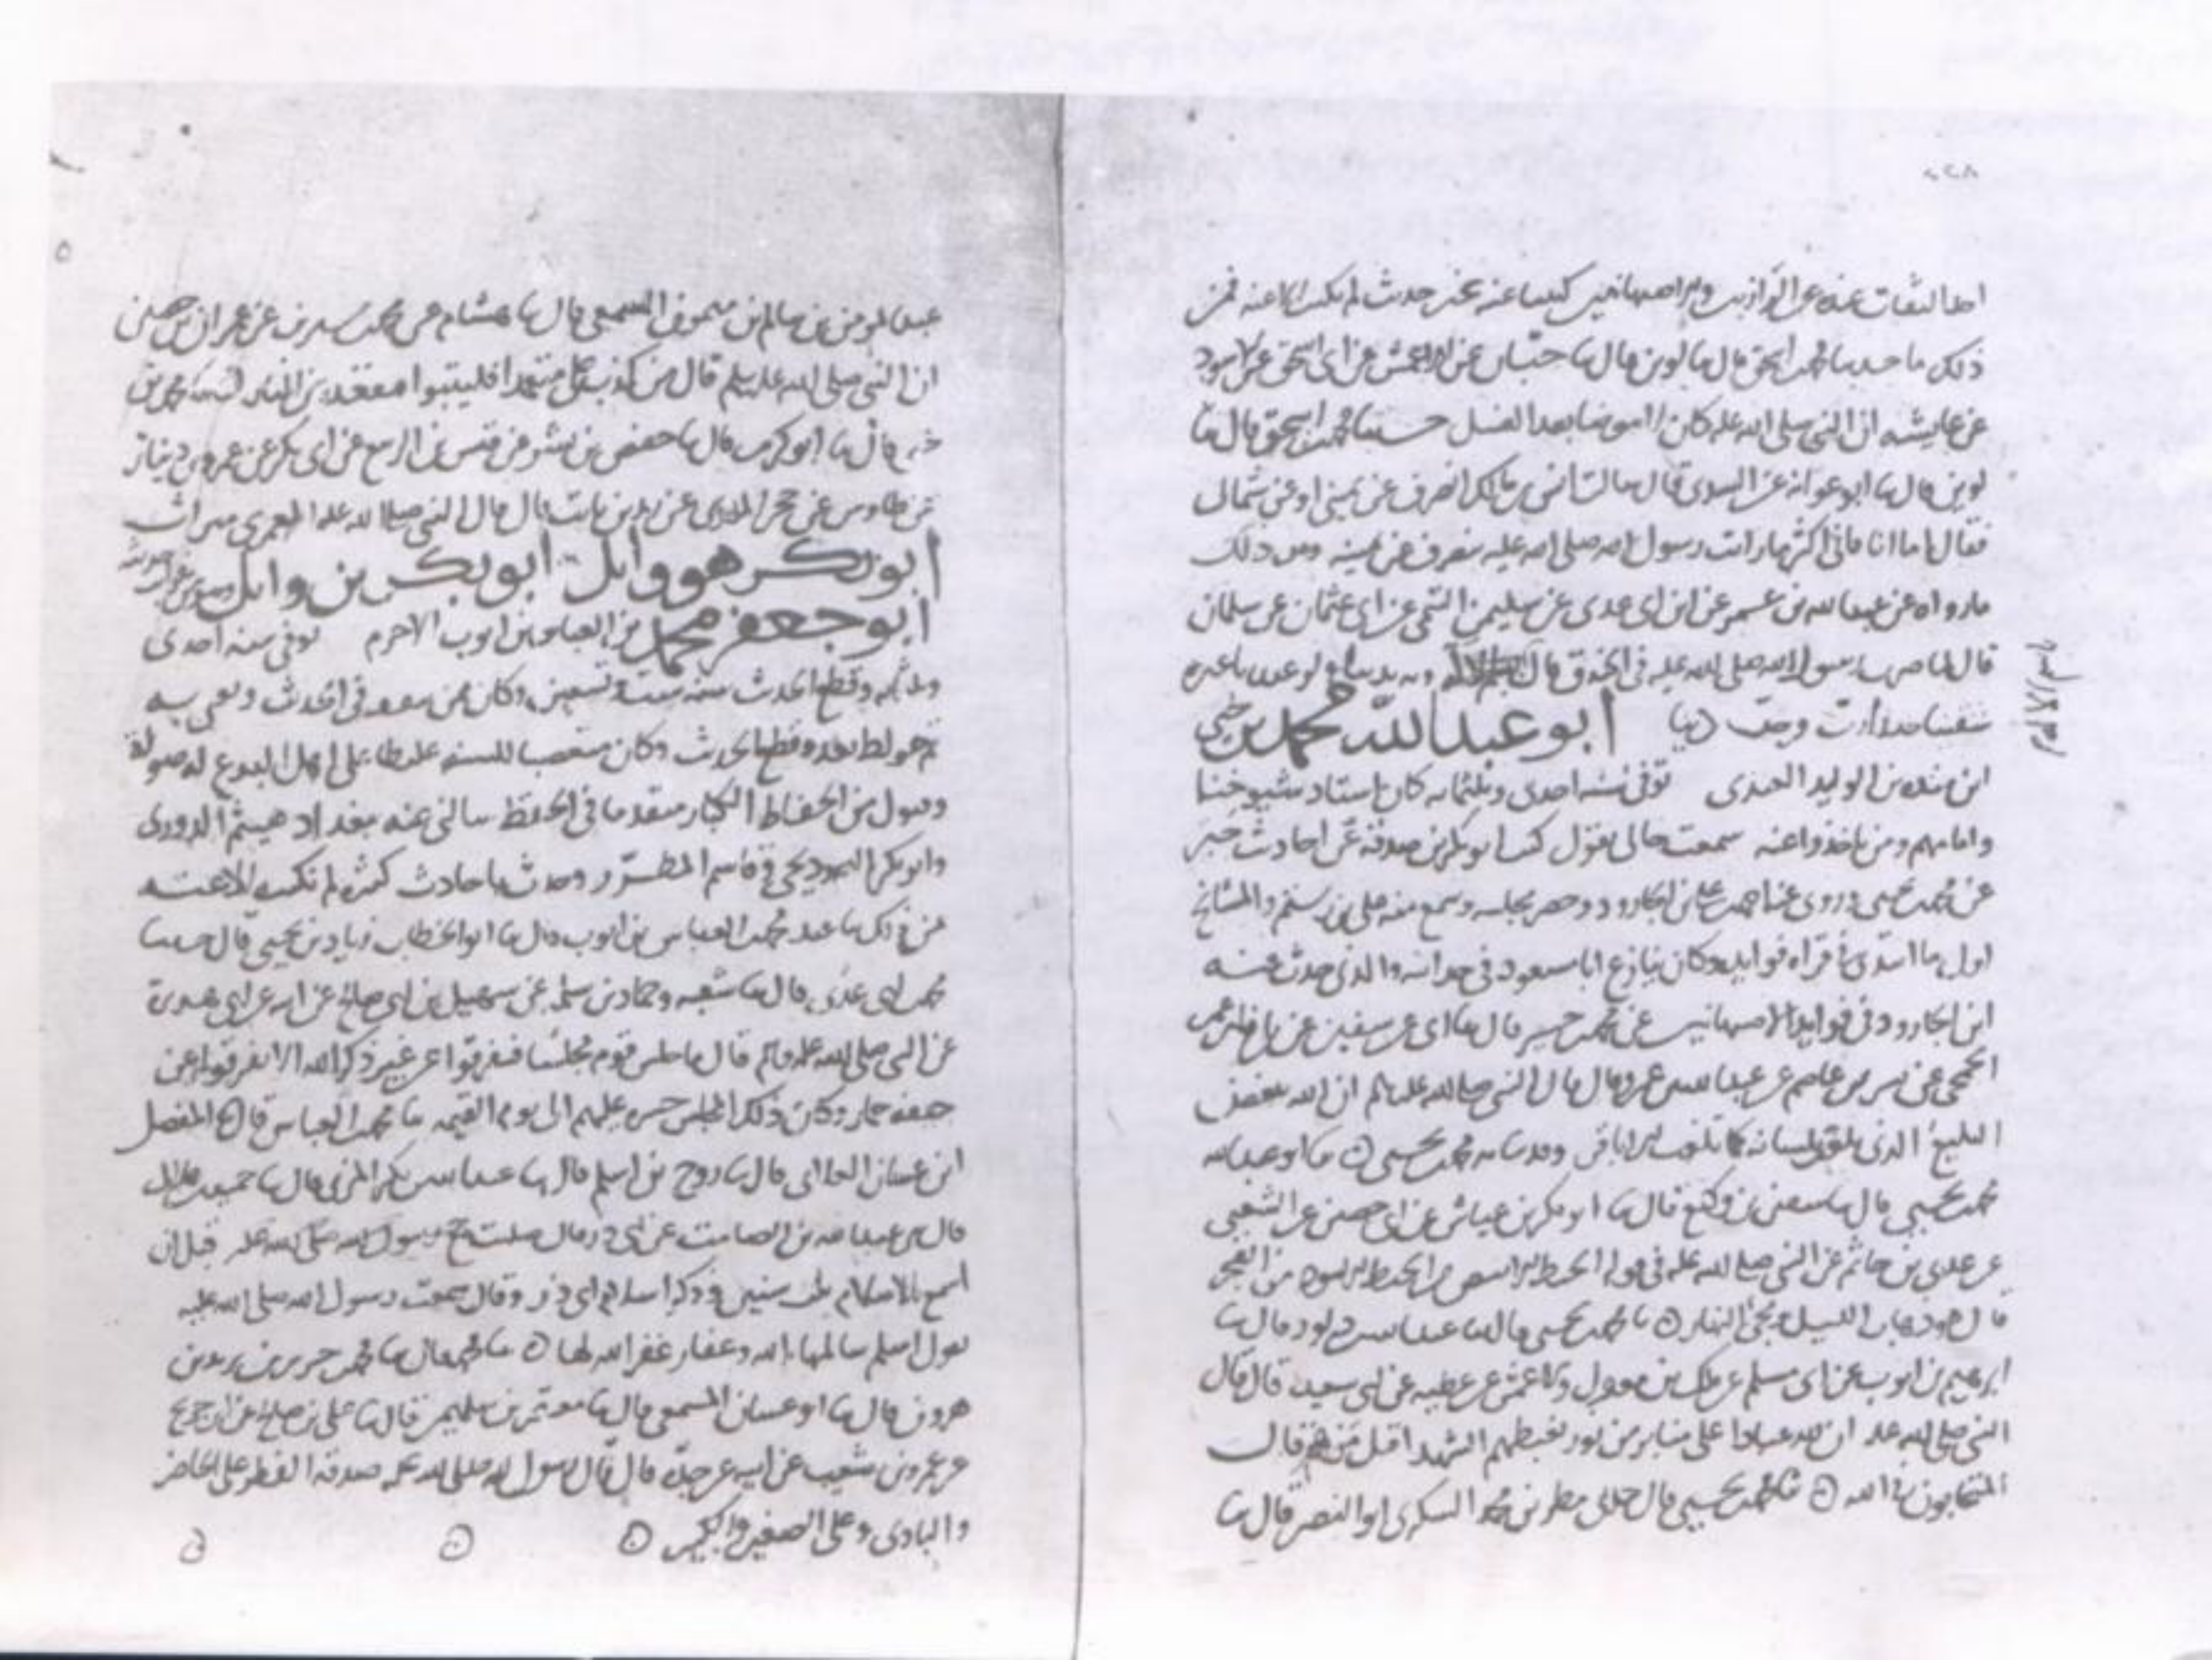 ٢٢٨
عنه عن الرازيين والاصبهانيين كتبنا عنه حديث لم نكتب الا عنه فمن
ذلك ما حدثنا محمد بن اسحق قال ثنا لوين قال ثنا حبان عن الاعمش عن ابى اسحق عن الاسود
عن عايشه ان النبى صلى الله عليه كان لا يتوضا بعد الغسل حدثنا محمد بن اسحق قال ثنا
لوين قال ثنا ابو عوانه عن السدى قال سالت انس بن مالك انصرف عن يمينى او عن شمالى
فقال اما انا فانى اكثر ما رايت رسول الله صلى الله عليه ينصرف عن يمينه ومن ذلك
ما رواه عن عبد الله بن عمر عن ابن ابى عدى عن سليمن التيمى عن ابى عثمان عن سلمان
قال لما ضرب رسول الله صلى الله عليه فى الخندق قال بسم الله وبه بدينا ولو عبدنا غيره
شقينا حبذا ربا وحب دينا ابو عبد الله محمد بن يحيى
ابن منده بن الوليد العبدى توفى سنه احدى وثلثمايه كان استاد شيوخنا
وامامهم ومن اخذوا عنه سمعت خالى يقول كتب ابو بكر بن صدقة عن احاديث جبر
عن محمد بن يحيى وروى عنه احمد بن على بن الجارود وحضر مجلسه وسمع منه على بن رستم والمشايخ
اول ما ابتدى قراه فوايده وكان ينازع ابا مسعود فى حداثته والذى حدث عنه
ابن الجارود فى فوايد الاصبهانيين عن محمد بن جبر قال ثنا ابى عن سفين عن نافع بن عمر
الجمحى عن بشر بن عاصم عن عبد الله بن عمرو قال قال النبى صلى الله عليه وسلم ان الله يبغض
البليغ الذى يلفت لسانه كما تلفت الباقر وحدثنا به محمد بن يحيى ثنا ابو عبد الله
محمد بن يحيى قال ثنا سفين بن وكيع قال ثنا ابو بكر بن عياش عن ابى حصين عن الشعبى
عن عدى بن حاتم عن النبى صلى الله عليه فى قوله الخيط الابيض من الخيط الاسود من الفجر
قال هو ذهاب الليل ومجئ النهار ثنا محمد بن يحيى قال ثنا عبد الله بن داود قال ثنا
ابرهيم بن ايوب عن ابى مسلم عن ملك بن مغول والاعمش عن عطيه عن ابى سعيد قال قال
النبى صلى الله عليه ان لله عبادا على منابر من نور يغبطهم الشهدا قيل من هم قال
المتحابون فى الله ثنا محمد بن يحيى قال حدثنى مطر بن محمد السكرى ابو النصر قال ثنا
عبد المومن بن سالم بن ميمون المسمعى قال ثنا هشام عن محمد بن سيرين عن عمران بن حصين
ان النبى صلى الله عليه وسلم قال من كذب على متعمدا فليتبوا مقعده من النار محمد بن
قال ثنا ابو كريب قال ثنا حفص بن بشر عن قيس بن الربيع عن ابى بكر عن عمرو بن دينار
عن طاوس عن حجر المدرى عن زيد بن ثابت قال قال النبى صلى الله عليه العمرى ميراث
ابو بكر هو وايل ابو بكر بن وايل
ابو جعفر محمد بن العباس بن ايوب الاخرم توفى سنه احدى
وثلثمايه وقطع الحديث سنه ست وتسعين وكان ممن يتفقه فى الحديث ويفتى به
ثم خولط بعد وقطع الحديث وكان متعصبا للسنه غليظا على اهل البدع له صولة
وقبول من الحفاظ الكبار متقدما فى الحفظ سالنى عنه ببغداد هيثم الدورى
وابو بكر البرديجى وقاسم المطرز وحدث باحاديث كثيره لم نكتب الا عنه
فمن ذلك ثنا محمد بن العباس بن ايوب قال ثنا ابو الخطاب زياد بن يحيى قال حدثنا
محمد بن ابى عدى قال ثنا شعبه وحماد بن سلمه عن سهيل بن ابى صالح عن ابيه عن ابى هريرة
عن النبى صلى الله عليه وسلم قال ما جلس قوم مجلسا فتفرقوا عن غير ذكر الله الا تفرقوا عن
جيفه حمار وكان ذلك المجلس حسره عليهم الى يوم القيمه ثنا محمد بن العباس قال ثنا المفضل
ابن غسان الغلابى قال ثنا روح بن اسلم قال ثنا عبد الله بن بكر المزنى قال ثنا حميد بن هلال
قال عن عبد الله بن الصامت عن ابى ذر قال صليت مع رسول الله صلى الله عليه قبل ان
اسمع بالاسلام ثلث سنين وذكر اسلام ابى ذر وقال سمعت رسول الله صلى الله عليه
يقول اسلم سالمها الله وغفار غفر الله لها ثنا محمد قال ثنا محمد بن حرب بن يزيد بن
هرون قال ثنا ابو غسان المسمعى قال ثنا معتمر بن سليمن قال ثنا على بن صالح عن ابن جريج
عن عمرو بن شعيب عن ابيه عن جده قال قال رسول الله صلى الله عليه صدقه الفطر على الحاضر
والبادى وعلى الصغير والكبير